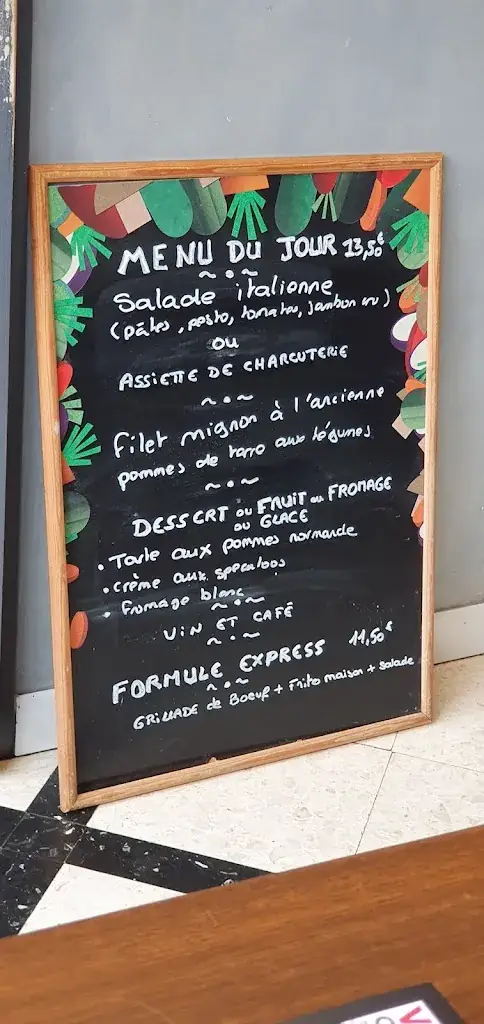 MENU DU JOUR 13,50€
~•~
Salade italienne
(pâtes, pesto, tomates, jambon cru)
OU
ASSIETTE DE CHARCUTERIE
~•~
Filet mignon à l'ancienne
pommes de terre aux légumes
~•~
DESSERT ou FRUIT ou FROMAGE
ou GLACE
• Tarte aux pommes normande
• Crème aux speculoos
• Fromage blanc
~•~
VIN ET CAFÉ
~•~
FORMULE EXPRESS 11,50€
~•~
GRILLADE de Boeuf + Frite maison + salade